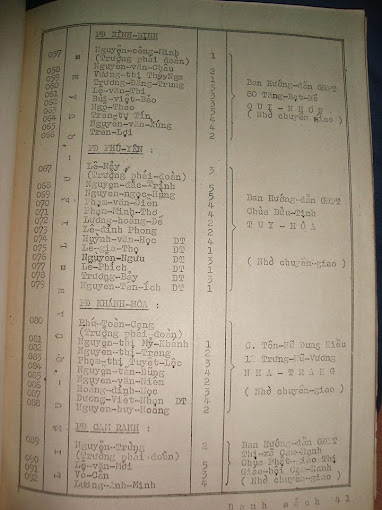 PĐ BÌNH-ĐỊNH
057 Nguyễn-công-Minh 1
(Trưởng phái đoàn)
058 Nguyễn-văn-Châu 2
059 Vương-thị Thúy Nga 1
060 Trương-Đăng-Trung 5
061 Lê-văn-Thi 5
062 Bùi-việt-Bảo 3
063 Ngô-Thao 5
064 Trần-tự Tín 6
065 Nguyễn-văn-Xứng 2
066 Trần-Lợi 2
Ban Hướng-dẫn GĐPT
80 Tăng-Bạt-Hổ
QUI-NHƠN
( Nhờ chuyển giao )
PĐ PHÚ-YÊN :
067 Lê-Nậy 3
(Trưởng phái-đoàn)
068 Nguyễn-đắc-Trình 5
069 Nguyễn-ngọc-Hùng 5
070 Phạm-văn-Diên 4
071 Phạm-Ninh-Thơ 4
072 Lương-hoàng-Đề 2
073 Lê-đình Phong 2
074 Huỳnh-văn-Học DT 4
075 Lê-gia-Thọ DT 1
076 Nguyễn-Ngưu DT 3
077 Lê-Phích DT 1
078 Trương-Bảy DT 3
079 Nguyễn-Tấn-Ích DT 1
Ban Hướng-dẫn GĐPT
Chùa Bửu-Tịnh
TUY-HÒA
( Nhờ chuyển-giao )
PĐ KHÁNH-HÒA :
080 Phú-Toàn-Cang
(Trưởng phái đoàn)
081 Nguyễn-thị Mỹ-Khánh 1
082 Nguyễn-thị-Trang 2
083 Phạm-thị Tuyết-Lộc 3
084 Nguyễn-tấn-Bửng 4
085 Nguyễn-văn-Niên 2
086 Hoàng-đình-Học 3
087 Dương-Việt-Nhơn DT 4
088 Nguyễn-huy-Hoàng 2
C. Tôn-Nữ Dung Kiều
Trưng-Nữ-Vương
NHA-TRANG
( Nhờ chuyển-giao )
PĐ CAM RANH :
089 Nguyễn-Trung 2
090 (Trưởng phái-đoàn)
091 Lê-văn-Mới 5
092 Võ-Cần 3
Lương-Anh-Minh 4
Ban Hướng-dẫn GĐPT
Thị-xã Cam-Ranh
Chùa Phật-Giáo Thị
Giáo-hội Cam-Ranh
( Nhờ chuyển-giao )
Danh sách 41